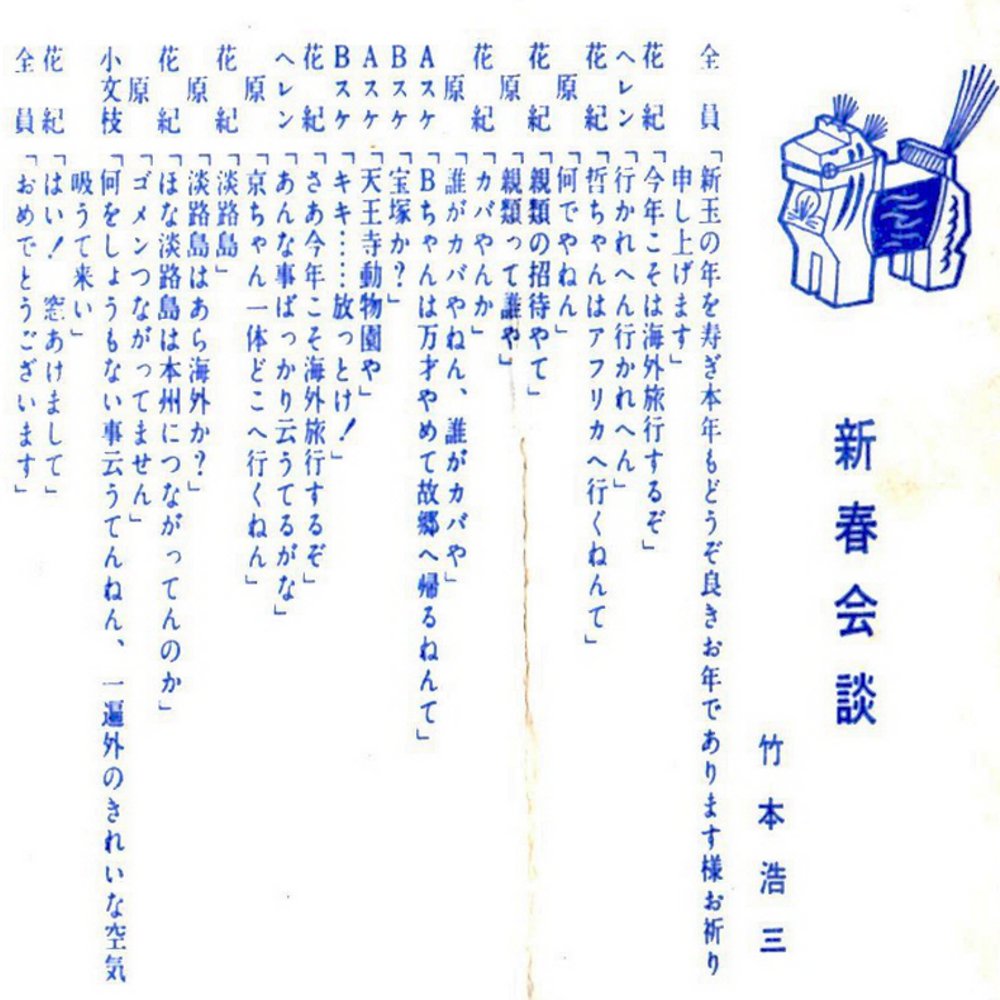 新春会談
竹本浩三
全員「新玉の年を寿ぎ本年もどうぞ良きお年であります様お祈り
申し上げます」
花紀「今年こそは海外旅行するぞ」
ヘレン「行かれへん行かれへん」
花紀「哲ちゃんはアフリカへ行くねんて」
原「何でやねん」
花紀「親類の招待やて」
原「親類って誰や」
花紀「カバやんか」
原「誰がカバやねん、誰がカバや」
Aスケ「Bちゃんは万才やめて故郷へ帰るねんて」
Bスケ「宝塚か?」
Aスケ「天王寺動物園や」
Bスケ「キキ……放っとけ!」
花紀「さあ今年こそ海外旅行するぞ」
ヘレン「あんな事ばっかり云うてるがな」
原「京ちゃん一体どこへ行くねん」
花紀「淡路島」
原「淡路島はあら海外か?」
花紀「ほな淡路島は本州につながってんのか」
原「ゴメンつながってません」
小文枝「何をしょうもない事云うてんねん、一遍外のきれいな空気
吸うて来い」
花紀「はい!窓あけまして」
全員「おめでとうございます」